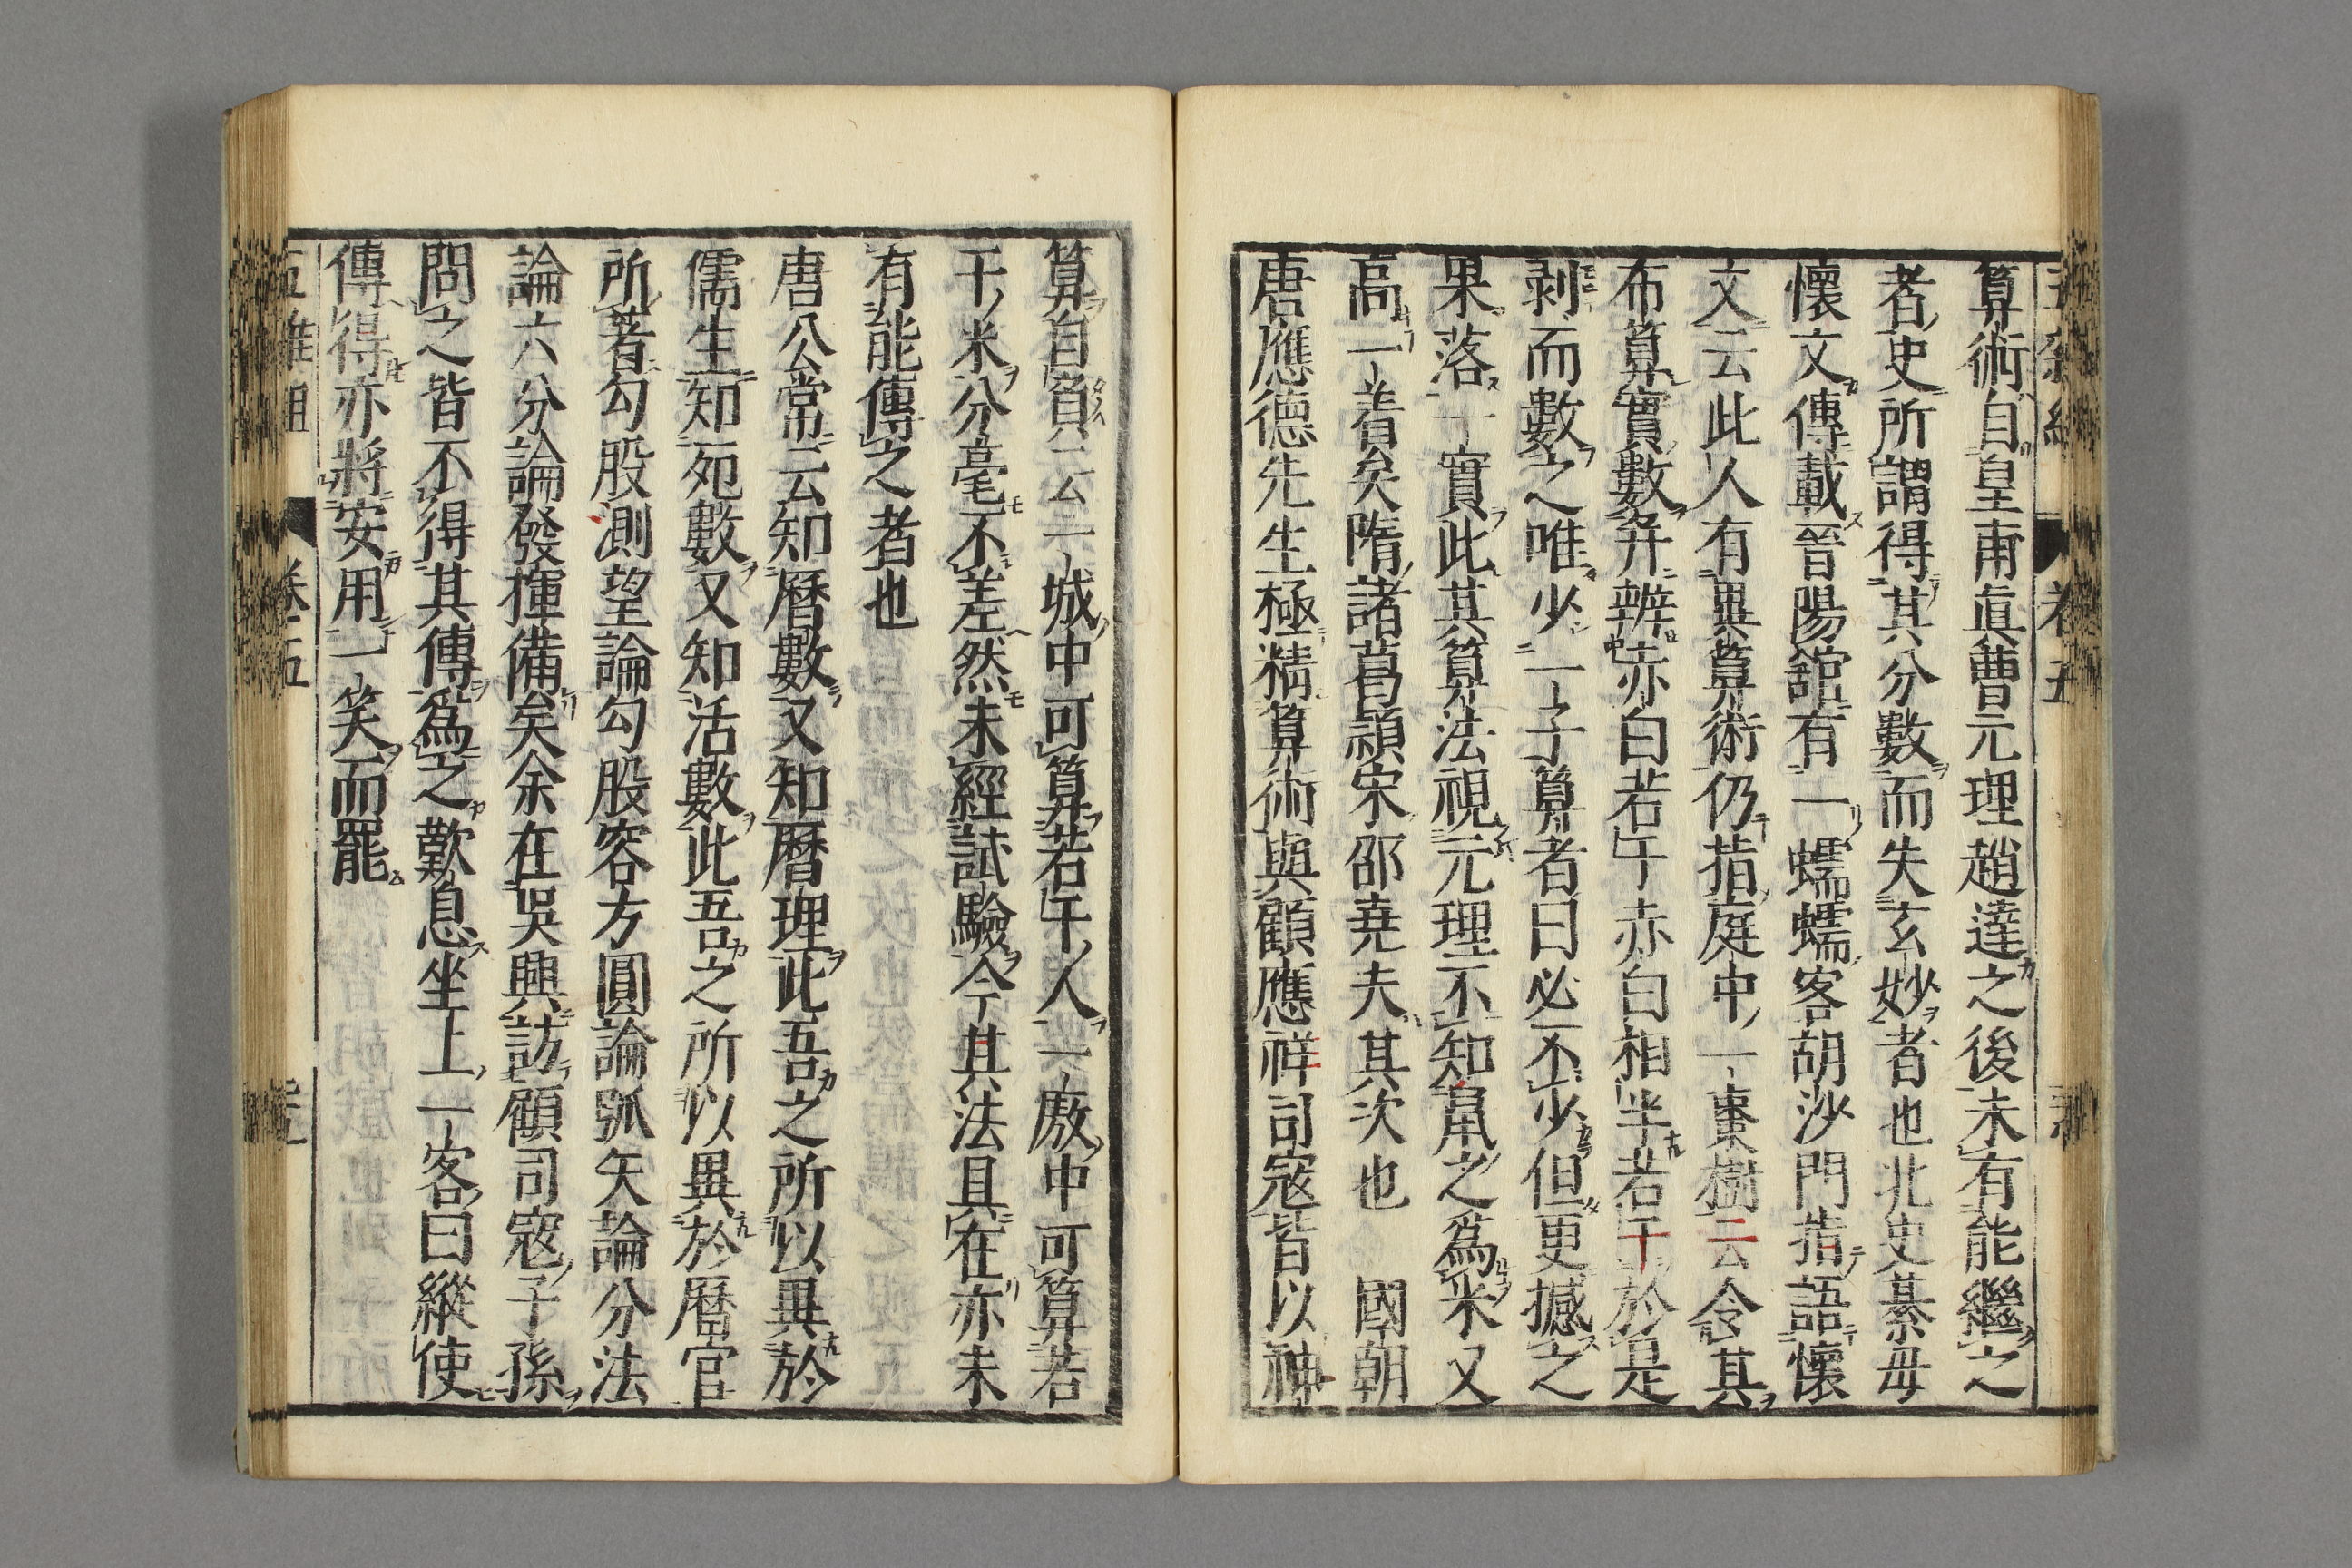 算術自皇甫真曹元理趙達之後未有能繼之
者史所謂得其分數而失玄妙者也北史綦毋
懷文傳載晉陽舘有一蠕蠕客胡沙門指語懷
文云此人有異算術仍指庭中一棗樹云令其
布算實數并辨赤白若干赤白相半若干於是
剥而數之唯少一子算者曰必不少但更撼之
果落一實此其算法視元理不知甪之為米又
高一着矣隋諸葛頴宋邵堯夫其次也　國朝
唐應德先生極精算術與顧應祥司寇皆以神
算自負云一城中可算若干人一廒中可算若
干米分毫不差然未經試驗今其法具在亦未
有能傳之者也
唐公常云知曆數又知曆理此吾之所以異於
儒生知死數又知活數此吾之所以異於曆官
所著勾股測望論勾股容方圓論弧矢論分法
論六分論發揮備矣余在吳興訪顧司寇子孫
問之皆不得其傳為之歎息坐上一客曰縱使
傳得亦將安用一笑而罷
卷五